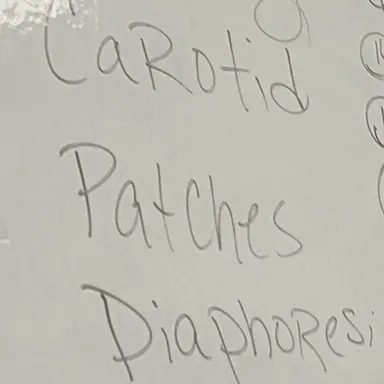 Carotid
Patches
Diaphoresi